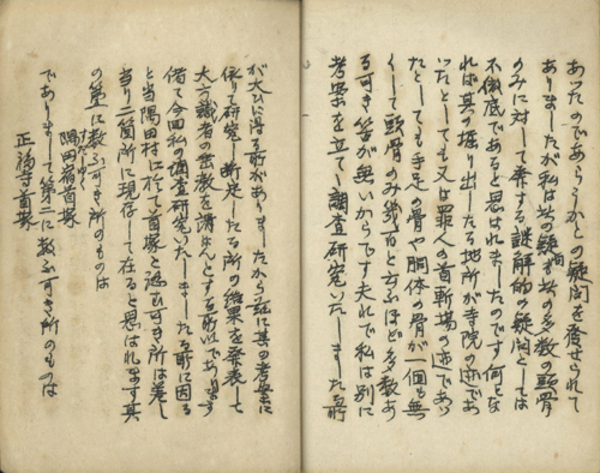 あつたのであらうかとの疑問を発せられて
ありましたが私は此の疑問も此の多数の頭骨
のみに対して発する謎解的の疑問としては
不徹底であると思はれましたのです何とな
れば其の掘り出したる地所が寺院の迹であ
つたとしても又は罪人の首斬場の迹であつ
たとしても手足の骨や胴体の骨が一個も無
くして頭骨のみ幾百と云ふほど多数あ
る可き筈が無いからです夫れで私は別に
考案を立て調査研究いたしました所
が大ひに得る所がありましたから茲に其の考案に
依りて研究し断定したる所の結果を発表して
大方識者の密教を請はんとする所以であります
偖て今回私の調査研究いたしましたる所に因る
と当隅田村に於て首塚と認む可き所は差し
当り二箇所に現存して在ると思はれます其
の第一に数ふ可き所のものは
隅田宿首塚
すだじゆく
でありまして第二に数ふ可き所のものは
正福寺首塚